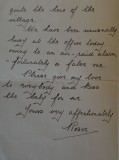 quite the time of the
village.
We have been unusually
busy at the office today
owing to an air-raid alarm,
fortunately a false one.
Please give my love
to everybody and kiss
the baby for me
Yours very affectionately